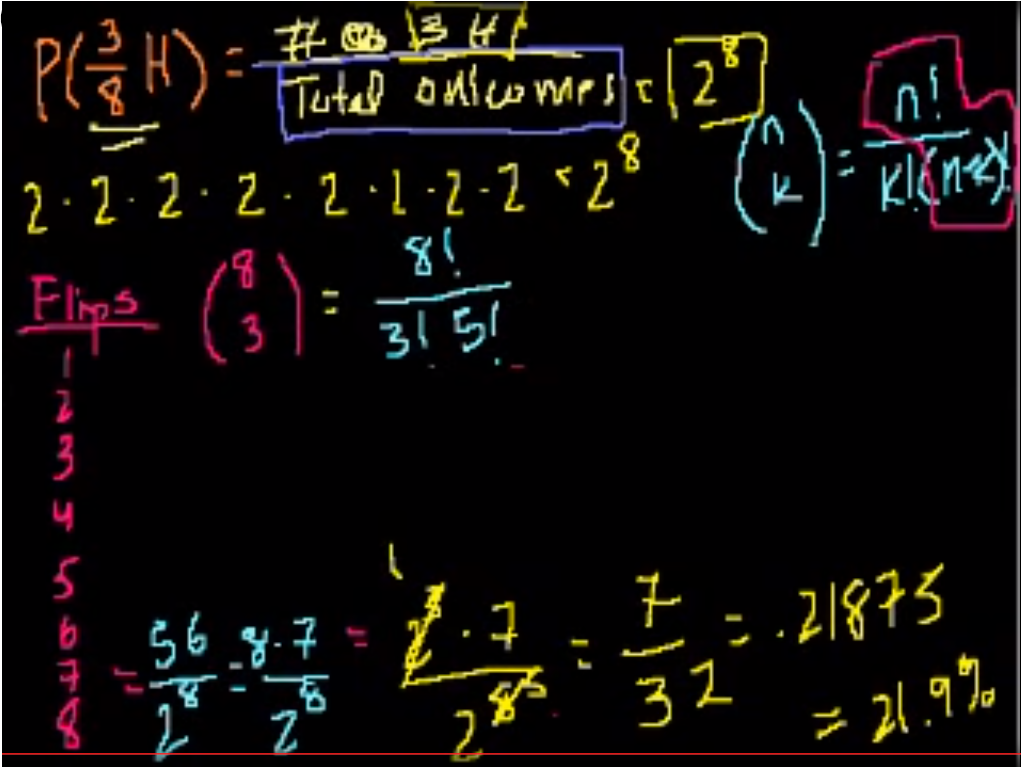 P(3/8 H) = # w 3 H / Total outcomes = 2^8
(n k) = n! / k!(n-k)!
2 · 2 · 2 · 2 · 2 · 2 · 2 · 2 = 2^8
Flips
(8 3) = 8! / 3! 5!
1
2
3
4
5
6
7
8
= 56 / 2^8 = 8 · 7 / 2^8 = 2^3 · 7 / 2^8 5 = 7 / 32 = .21875
= 21.9%